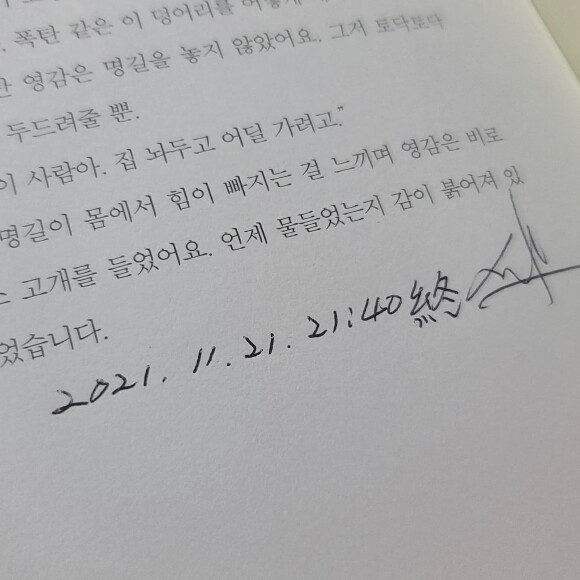 폭탄 같은 이 덩어리를
영감은 명길을 놓지 않았어요. 그저 토닥토닥
두드려줄 뿐.
이 사람아. 집 놔두고 어딜 가려고."
명길이 몸에서 힘이 빠지는 걸 느끼며 영감은 비로
고개를 들었어요. 언제 물들었는지 감이 붉어져 있
었습니다.
2021. 11. 21. 21:40 終